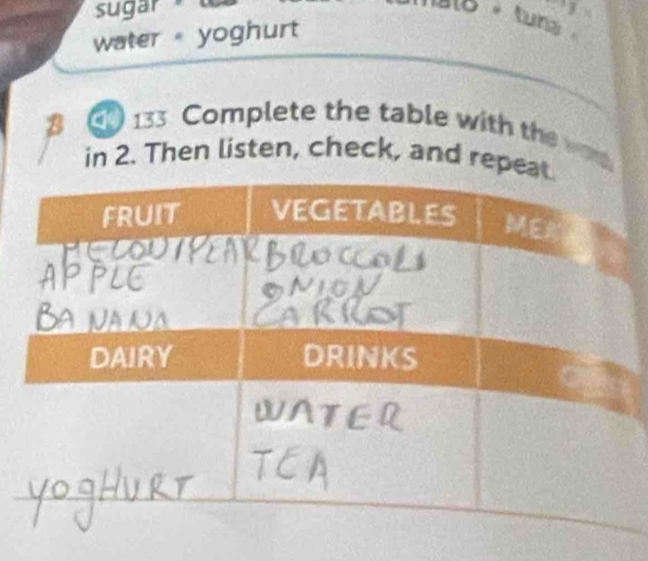 sugar
tuna
water • yoghurt
3 133 Complete the table with the
in 2. Then listen, check, and repeat.
FRUIT VEGETABLES
BROCCOLI
APPLE ONION
BANANA CARROT
DAIRY DRINKS
WATER
TEA
yogHURT